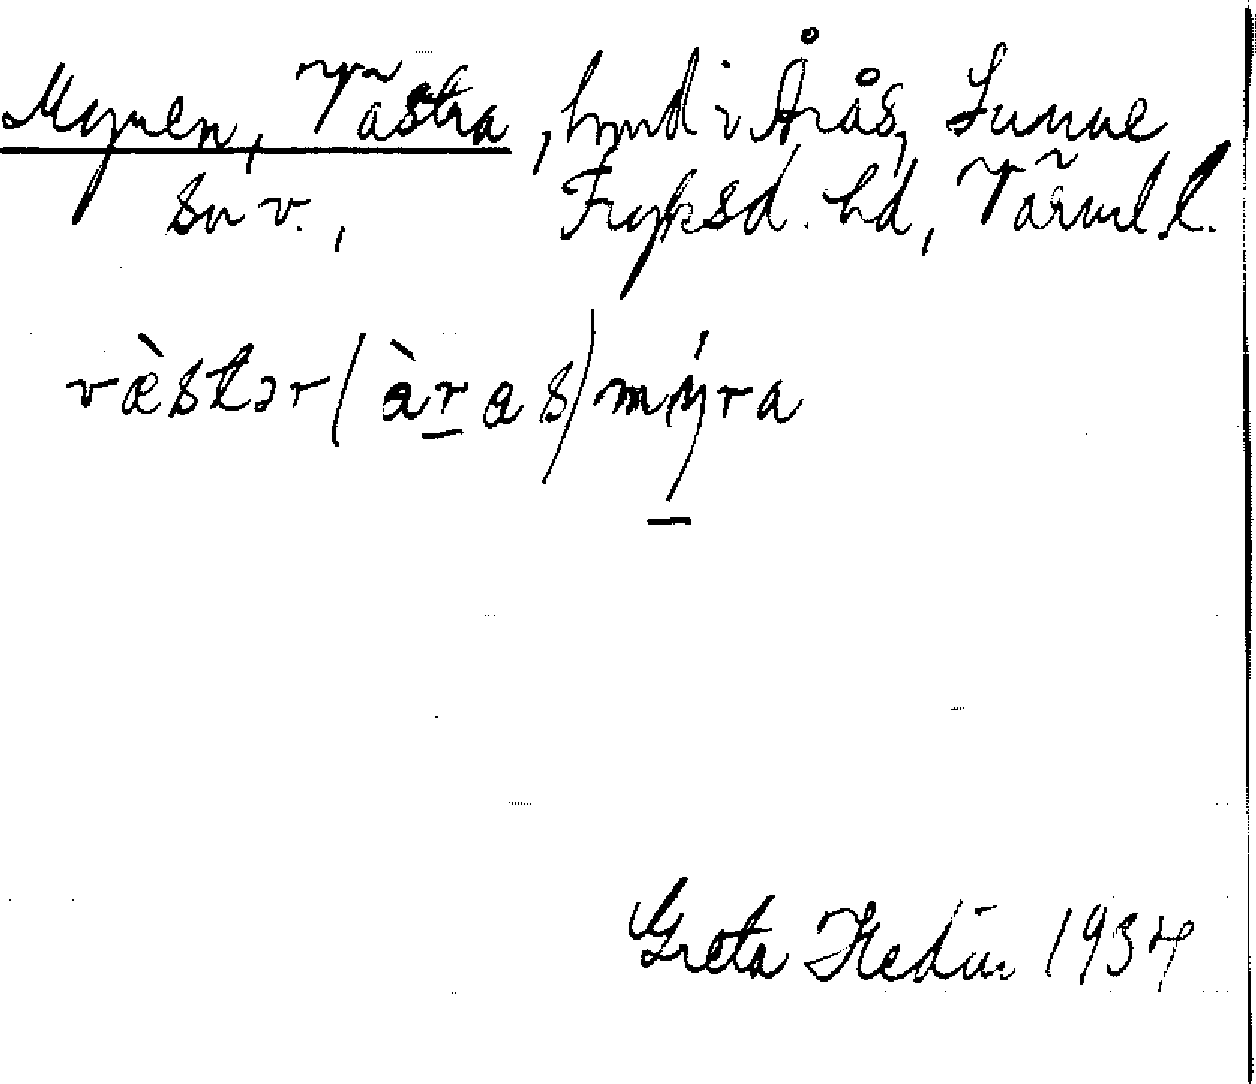 Myren, Västra, hmd i Årås, Sunne
sn v., Fryksd. hd, Värml.l.
væ̀stər(àr̲as)mýra
Greta Hedin 1934